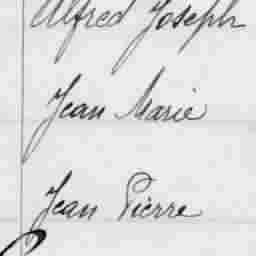 Alfred Joseph
Jean Marie
Jean Pierre